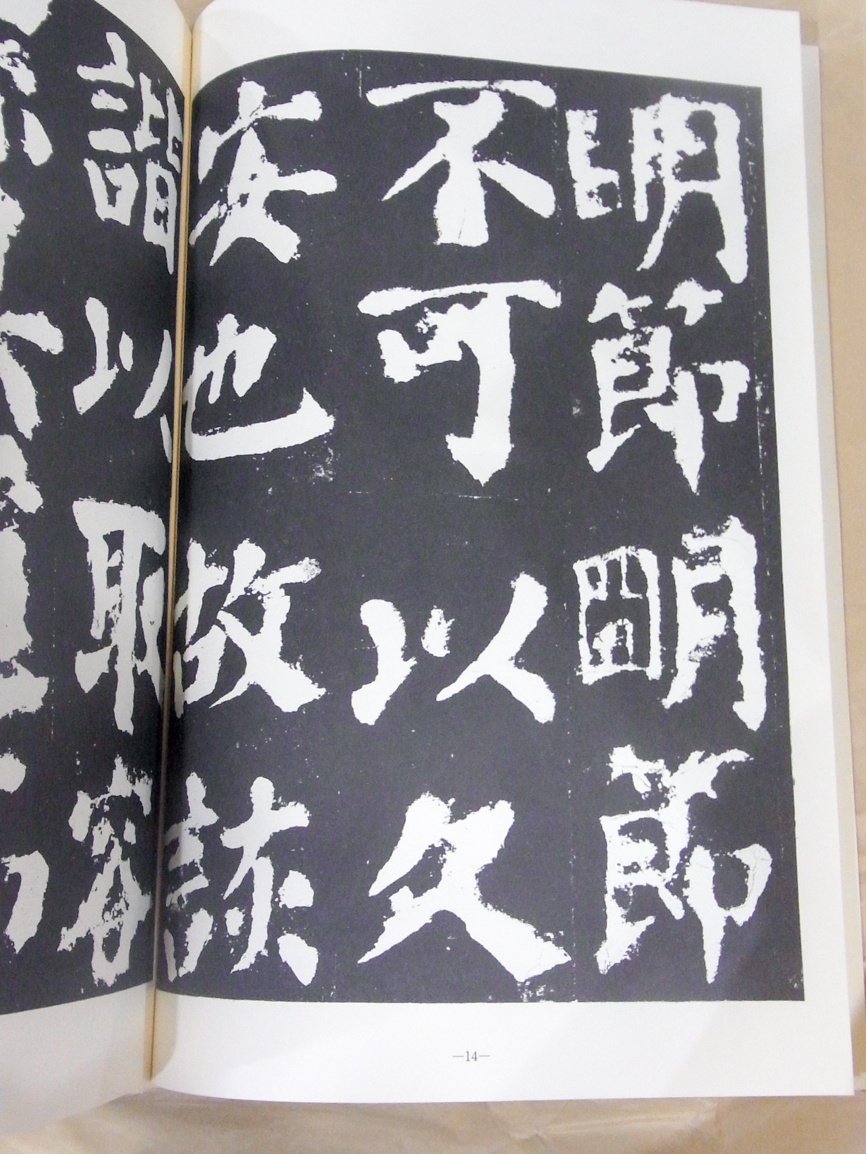 明節明節
不可以久
安也故詼
諧以取容
—14—